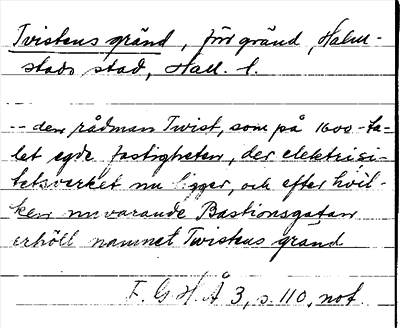 Tvistens gränd, förr gränd, Halm-
stads stad, Hall. l.
-- den rådman Twist, som på 1600-ta-
let egde fastigheten, der elektrisi-
tetsverket nu ligger, och efter hvil-
ken nuvarande Bastionsgatan
erhöll namnet Twistens gränd
F. G. H. Å 3, s. 110, not.